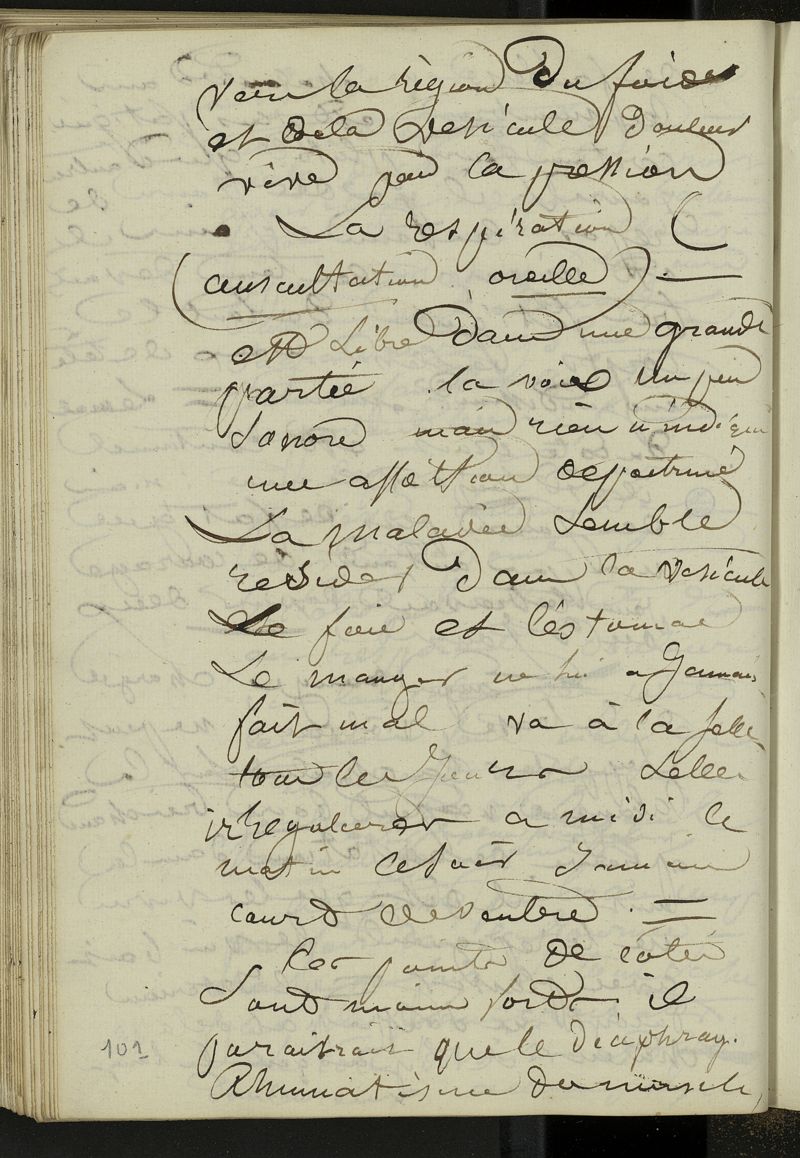 vers la région du foie
et de la vesicule douleur
vive par la pression
La respiration (
(auscultation oreille) —
est Libre dans une grande
partie la voix un peu
Sonore mais rien n'indiquant
une affection de poitrine
La maladie Semble
résider dans la vesicule
Le foie et l'éstomac
Le manger ne lui a Jamais
fait mal va à la selle
tous les Jours Selles
irregulieres a midi le
matin le soir Jamais
cours de ventre. =
les points de cotés
Sont moins forts il
paraitrait que le diaphrag.
Rhumatisme du muscle,
101